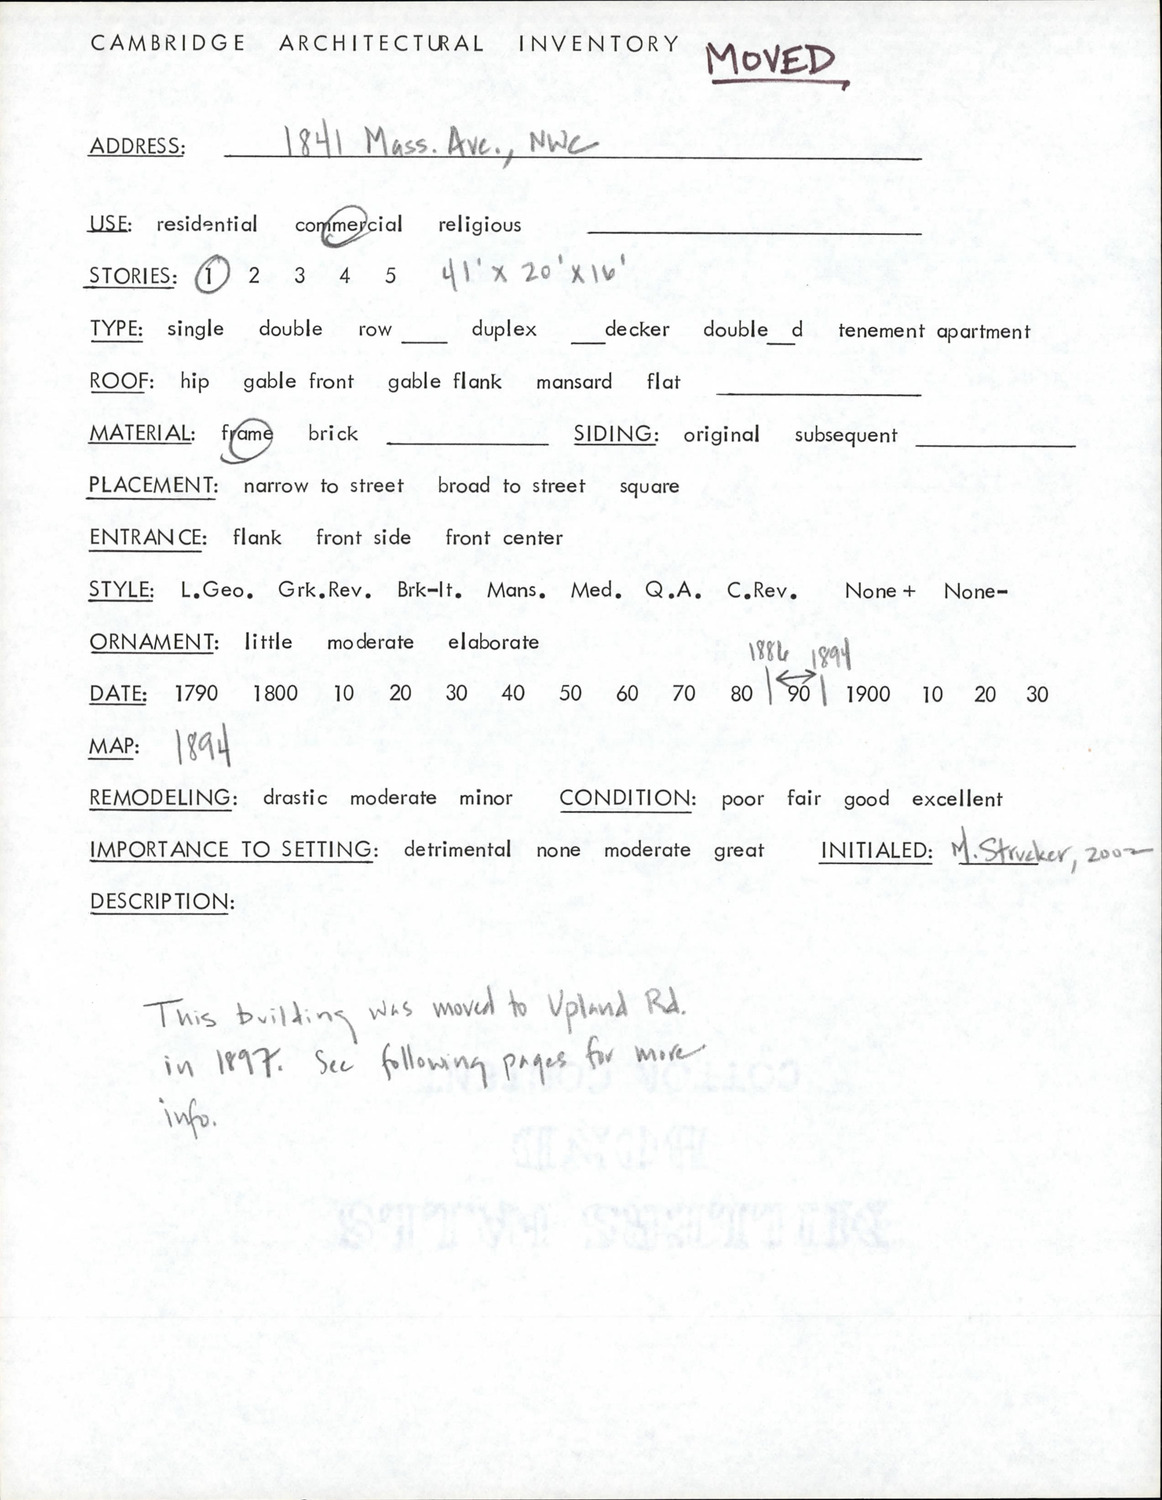 CAMBRIDGE ARCHITECTURAL INVENTORY MOVED
ADDRESS: 1841 Mass. Ave., NWC
USE: residential commercial religious
STORIES: 1 2 3 4 5 41' x 20' x 16'
TYPE: single double row ___ duplex ___decker double__d tenement apartment
ROOF: hip gable front gable flank mansard flat
MATERIAL: frame brick SIDING: original subsequent
PLACEMENT: narrow to street broad to street square
ENTRANCE: flank front side front center
STYLE: L.Geo. Grk.Rev. Brk-It. Mans. Med. Q.A. C.Rev. None+ None-
ORNAMENT: little moderate elaborate
1886 1894
DATE: 1790 1800 10 20 30 40 50 60 70 80 90 1900 10 20 30
MAP: 1894
REMODELING: drastic moderate minor CONDITION: poor fair good excellent
IMPORTANCE TO SETTING: detrimental none moderate great INITIALED: M. Strucker, 2002
DESCRIPTION:
This building was moved to Upland Rd.
in 1897. See following pages for more
info.